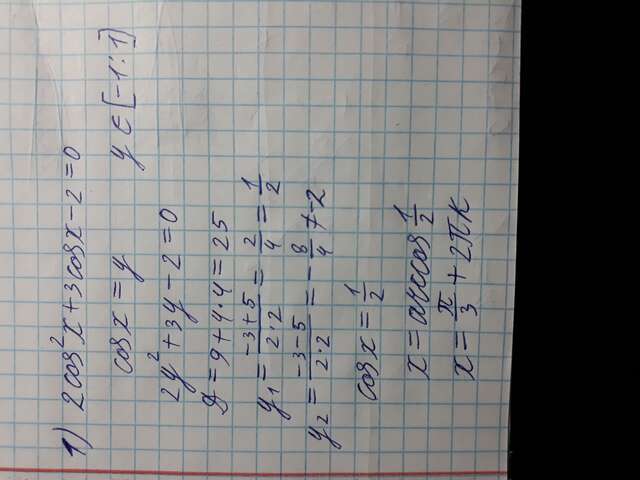 1) 2cos²x + 3cosx - 2 = 0
cosx = y y ∈ [-1; 1]
2y² + 3y - 2 = 0
D = 9 + 4·4 = 25
y₁ = (-3+5)/(2·2) = 2/4 = 1/2
y₂ = (-3-5)/(2·2) = -8/4 ≠ -2
cosx = 1/2
x = arccos 1/2
x = π/3 + 2πk